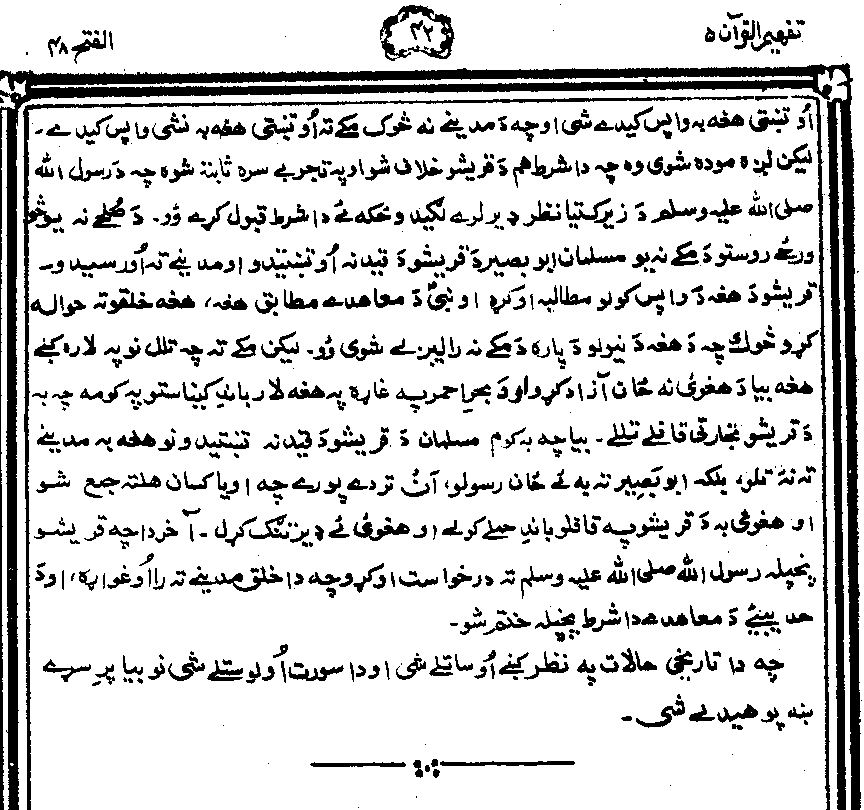 تفهيم القرآن ۵
۴۲
الفتح ۴۸
اُو تښتي هغه به واپس کيدے شي او چه دَ مدينے نه څوک مکے ته اُو تښتي هغه به نشي واپس کيدے۔
ليکن لږه موده شوی وه چه دا شرط هم دَ قريشو خلاف شو او په تجربے سره ثابته شوه چه دَ رسول الله
صلی الله عليه وسلم دَ زيرکتيا نظر ډير لرے لګيدو ځکه ئے دا شرط قبول کړے وُو۔ دَ صُلحے نه يو څو
ورځے روستو دَ مکے نه يو مسلمان ابو بصير دَ قريشو دَ قيد نه اُو تښتيدو او مدينے ته اُورسيدو۔
قريشو دَ هغه دَ واپس کولو مطالبه اوکړه او نبیؐ دَ معاهدے مطابق هغه، هغه خلقو ته حواله
کړو څوک چه دَ هغه دَ نيولو دَ پاره دَ مکے نه راليږلے شوی وُو۔ ليکن مکے ته چه تلل نو په لاره کښے
هغه بيا دَ هغوئ نه ځان آزاد کړو او دَ بحرِ احمر په غاړه په هغه لار باندِ کيناستو په کومه چه به
دَ قريشو تجارتي قافلے تللے۔ بيا چه به کوم مسلمان دَ قريشو دَ قيد نه تښتيدو نو هغه به مدينے
ته نهٔ تلو، بلکه ابو بَصِير ته به ئے ځان رسولو، آن تر دے پورے چه اويا کسان هلته جمع شو
او هغوئ به دَ قريشو په قافلو باندِ حملے کولے او هغوئ ئے ډير تنګ کړل۔ آخر دا چه قريشو
پخپله رسول الله صلی الله عليه وسلم ته درخواست اوکړو چه دا خلق مدينے ته را اُوغواړه، او دَ
حديبيئے دَ معاهدے دا شرط پخپله ختم شو۔
چه دا تاريخی حالات په نظر کښے اُو ساتلے شی او دا سورت اُولوستلے شی نو بيا پرِ سړے
ښه پوهيدے شی۔